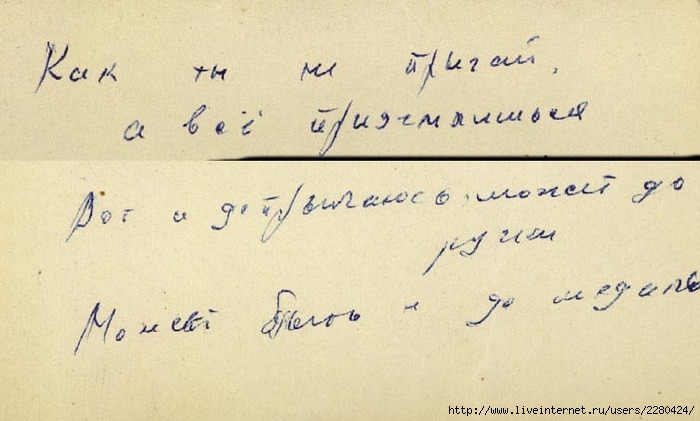 Как ты ни прыгай,
а всё приземлишься
Вот и допрыгаюсь, может до
ручки
Может быть и до медали
http://www.liveinternet.ru/users/2280424/